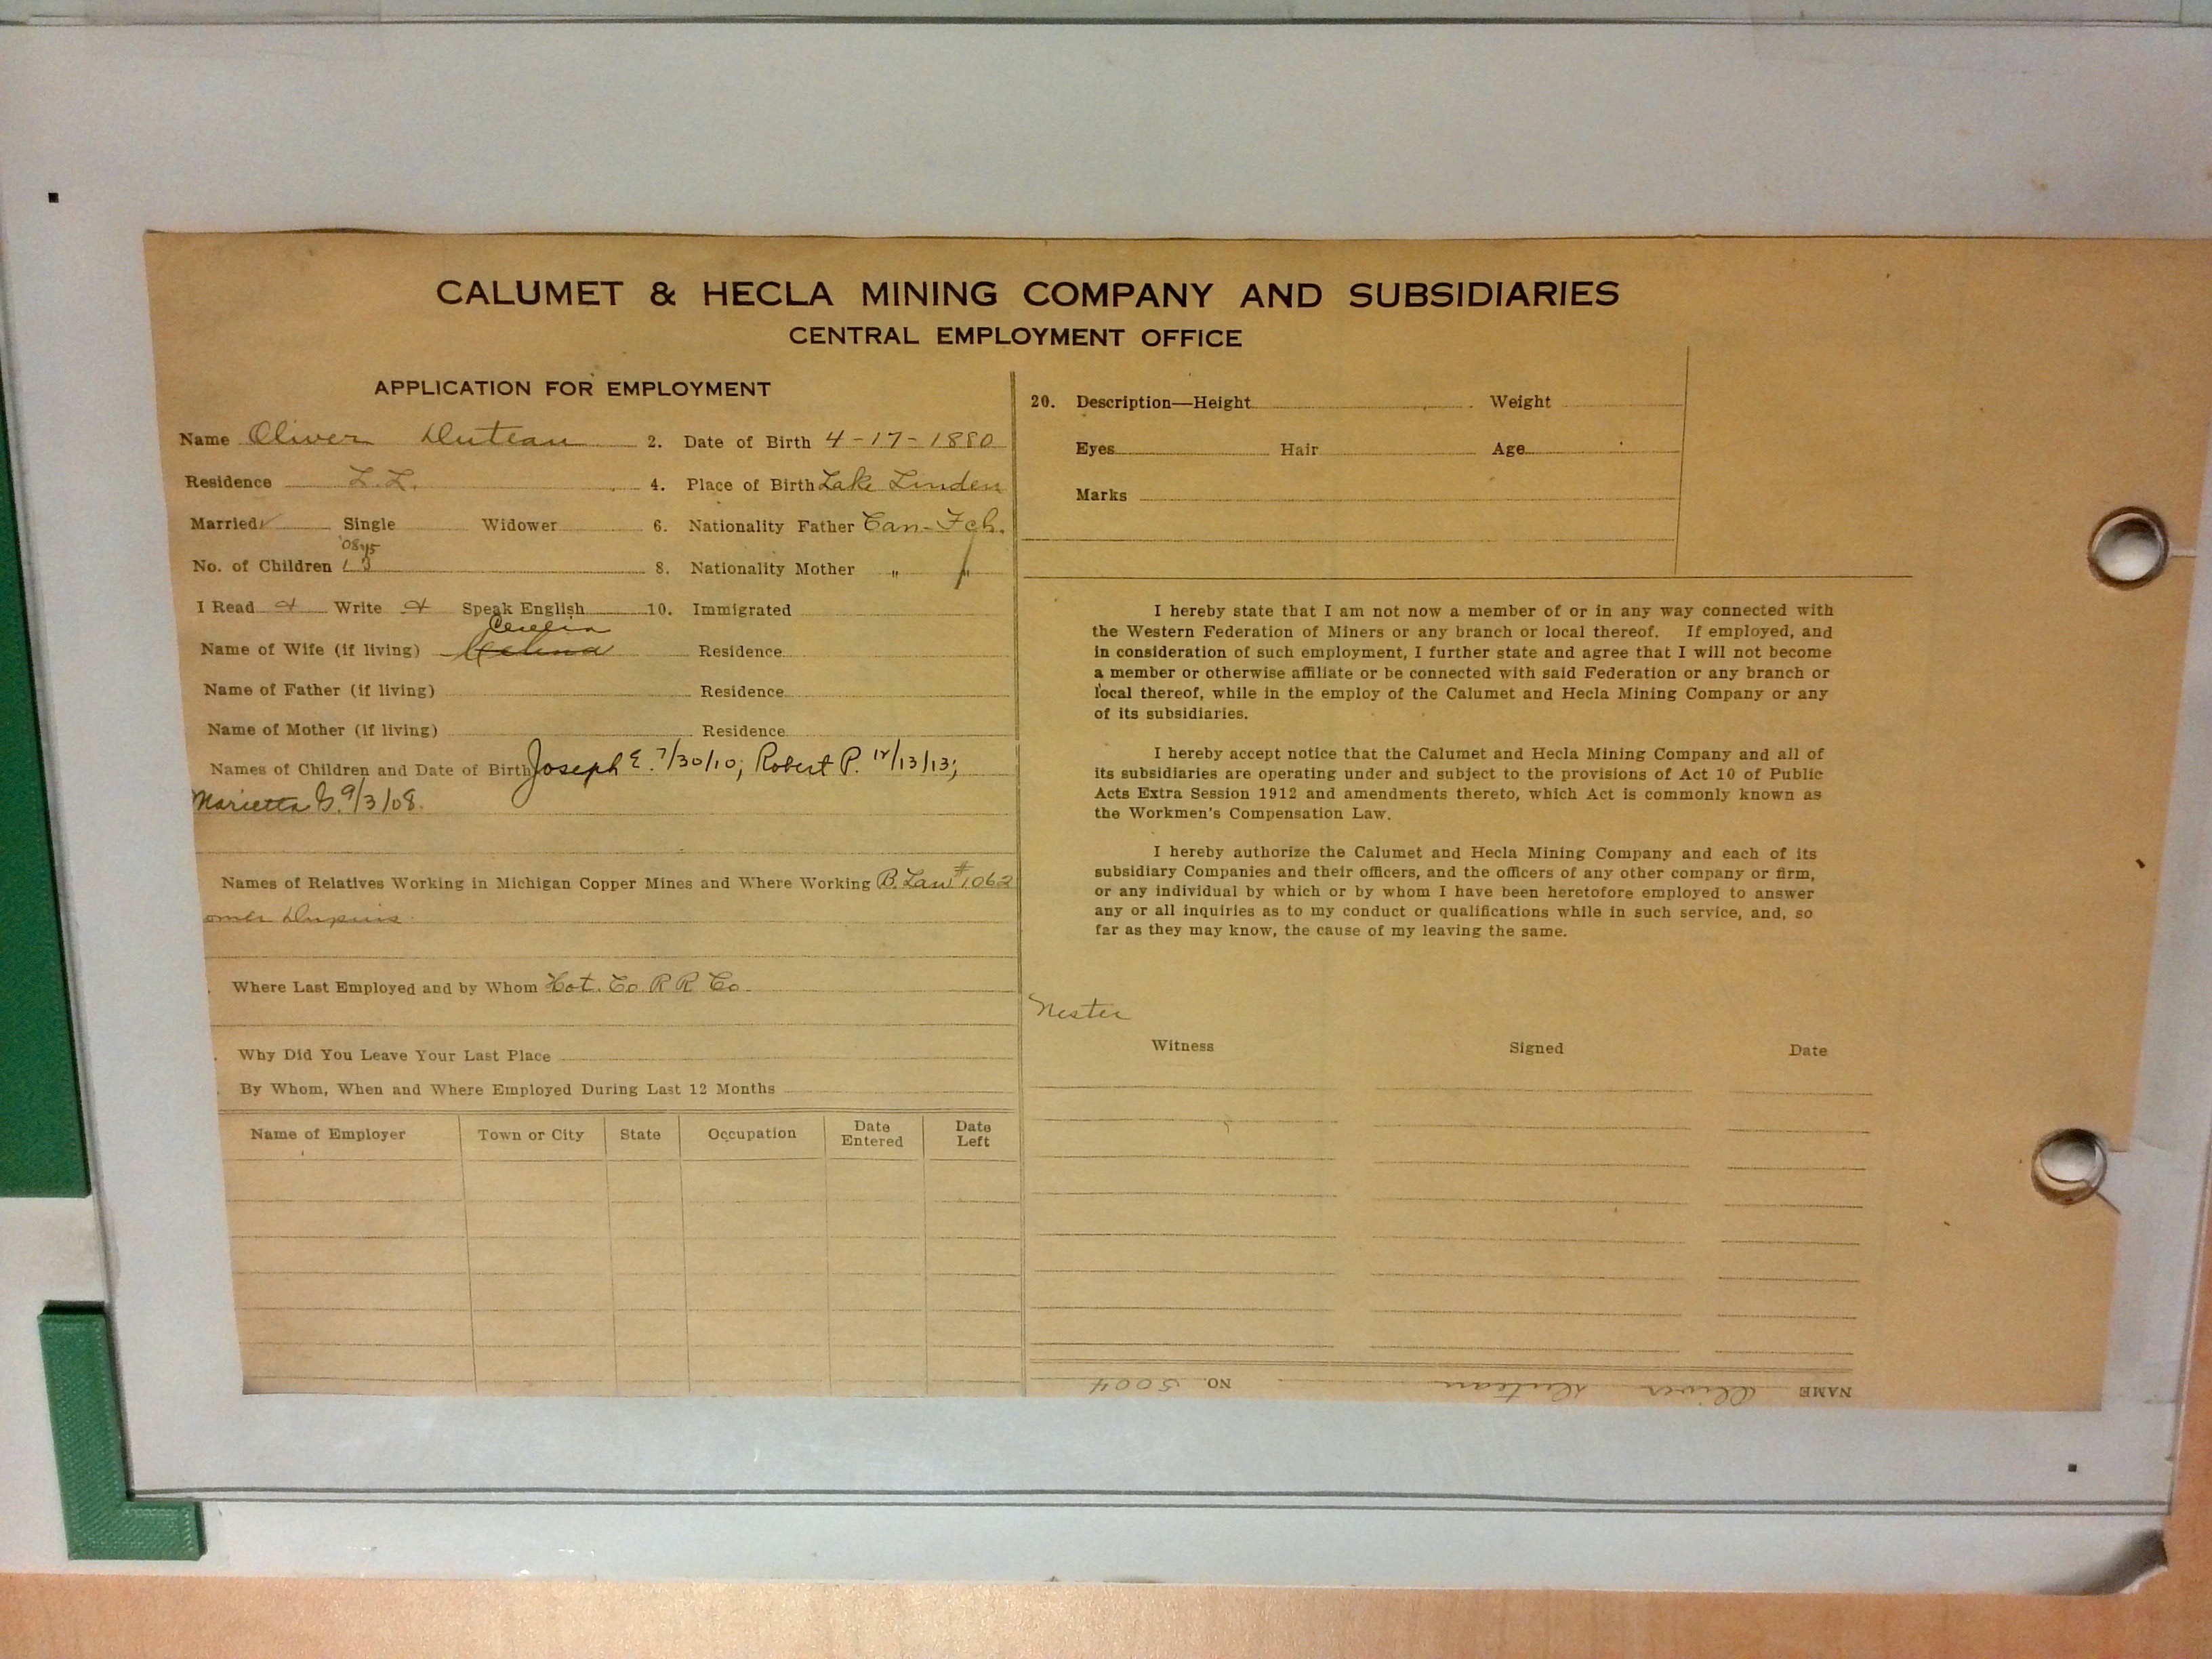 CALUMET & HECLA MINING COMPANY AND SUBSIDIARIES
CENTRAL EMPLOYMENT OFFICE
APPLICATION FOR EMPLOYMENT
Name Oliver Duteau 2. Date of Birth 4-17-1880
Residence L.L. 4. Place of Birth Lake Linden
Married ✓ Single Widower 6. Nationality Father Can-Fch.
No. of Children 3 8. Nationality Mother " "
I Read Write Speak English 10. Immigrated
Cecelia
Name of Wife (if living) Celina Residence
Name of Father (if living) Residence
Name of Mother (if living) Residence
Names of Children and Date of Birth Joseph E. 7/30/10; Robert P. 12/13/13;
Marietta G. 9/3/08.
Names of Relatives Working in Michigan Copper Mines and Where Working B. Law #1062
omer Dupuis
Where Last Employed and by Whom Hot. Co. R R Co.
Why Did You Leave Your Last Place
By Whom, When and Where Employed During Last 12 Months
Name of Employer Town or City State Occupation Date Entered Date Left
20. Description—Height Weight
Eyes Hair Age
Marks
I hereby state that I am not now a member of or in any way connected with
the Western Federation of Miners or any branch or local thereof. If employed, and
in consideration of such employment, I further state and agree that I will not become
a member or otherwise affiliate or be connected with said Federation or any branch or
local thereof, while in the employ of the Calumet and Hecla Mining Company or any
of its subsidiaries.
I hereby accept notice that the Calumet and Hecla Mining Company and all of
its subsidiaries are operating under and subject to the provisions of Act 10 of Public
Acts Extra Session 1912 and amendments thereto, which Act is commonly known as
the Workmen's Compensation Law.
I hereby authorize the Calumet and Hecla Mining Company and each of its
subsidiary Companies and their officers, and the officers of any other company or firm,
or any individual by which or by whom I have been heretofore employed to answer
any or all inquiries as to my conduct or qualifications while in such service, and, so
far as they may know, the cause of my leaving the same.
Nester
Witness Signed Date
NAME Oliver Duteau NO. 5004